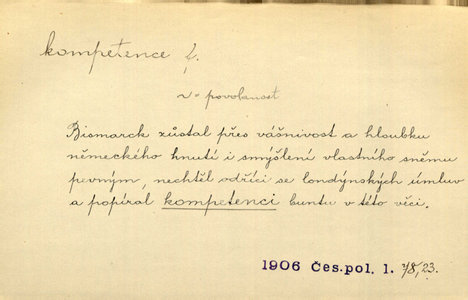 kompetence f.
povolanost
Bismarck zůstal přes vášnivost a hloubku
německého hnutí i smýšlení vlastního sněmu
pevným, nechtěl odříci se londýnských úmluv
a popíral kompetenci buntu v této věci.
1906 Čes. pol. 1. 7/8, 23.